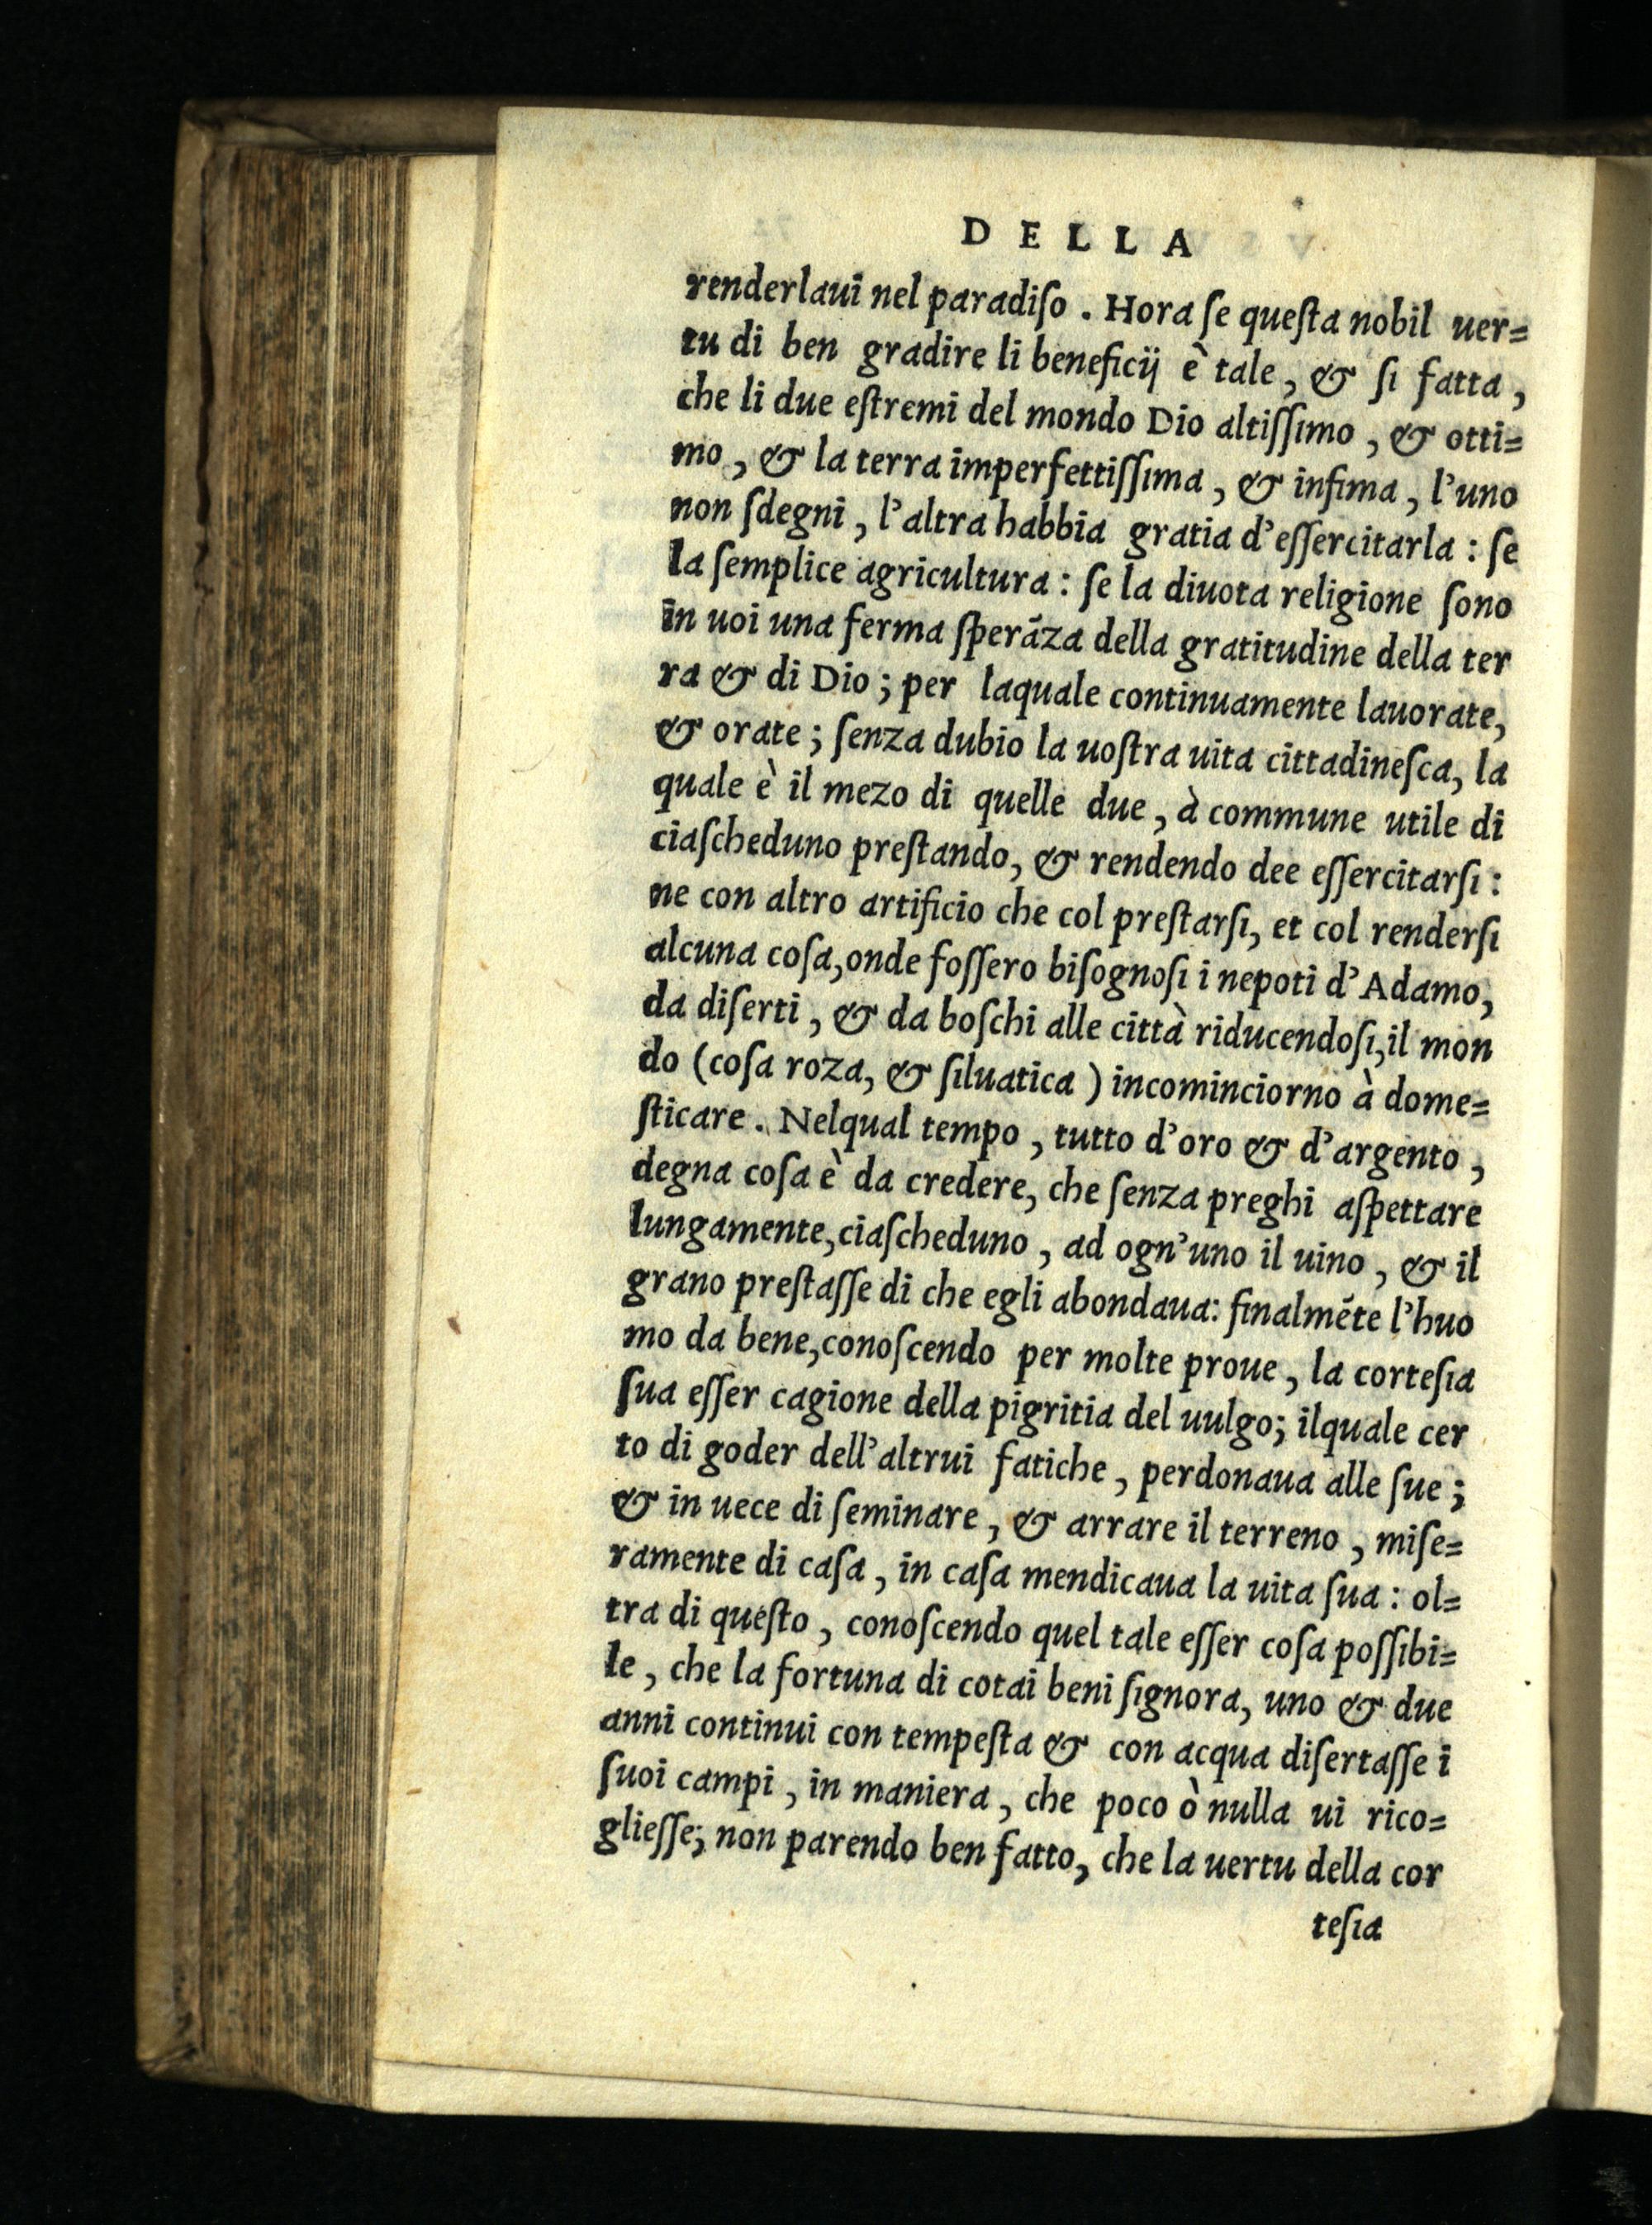 DELLA
renderlaui nel paradiſo . Hora ſe queſta nobil uer=
tu di ben gradire li beneficij è tale , & ſi fatta ,
che li due eſtremi del mondo Dio altiſſimo , & otti=
mo , & la terra imperfettiſſima , & infima , l'uno
non ſdegni , l'altra habbia gratia d'eſſercitarla : ſe
la ſemplice agricultura : ſe la diuota religione ſono
in uoi una ferma ſperāza della gratitudine della ter
ra & di Dio ; per laquale continuamente lauorate,
& orate ; ſenza dubio la uoſtra uita cittadineſca, la
quale è il mezo di quelle due , à commune utile di
ciaſcheduno preſtando, & rendendo dee eſſercitarſi :
ne con altro artificio che col preſtarſi, et col renderſi
alcuna coſa,onde foſſero biſognoſi i nepoti d'Adamo,
da diſerti , & da boſchi alle città riducendoſi,il mon
do (coſa roza, & ſiluatica ) incominciorno à dome=
ſticare . Nelqual tempo , tutto d'oro & d'argento ,
degna coſa è da credere, che ſenza preghi aſpettare
lungamente,ciaſcheduno , ad ogn'uno il uino , & il
grano preſtaſſe di che egli abondaua: finalmēte l'huo
mo da bene,conoſcendo per molte proue , la corteſia
ſua eſſer cagione della pigritia del uulgo; ilquale cer
to di goder dell'altrui fatiche , perdonaua alle ſue ;
& in uece di ſeminare , & arrare il terreno , miſe=
ramente di caſa , in caſa mendicaua la uita ſua : ol=
tra di queſto , conoſcendo quel tale eſſer coſa poſſibi=
le , che la fortuna di cotai beni ſignora, uno & due
anni continui con tempeſta & con acqua diſertaſſe i
ſuoi campi , in maniera , che poco ò nulla ui rico=
glieſſe; non parendo ben fatto, che la uertu della cor
teſia